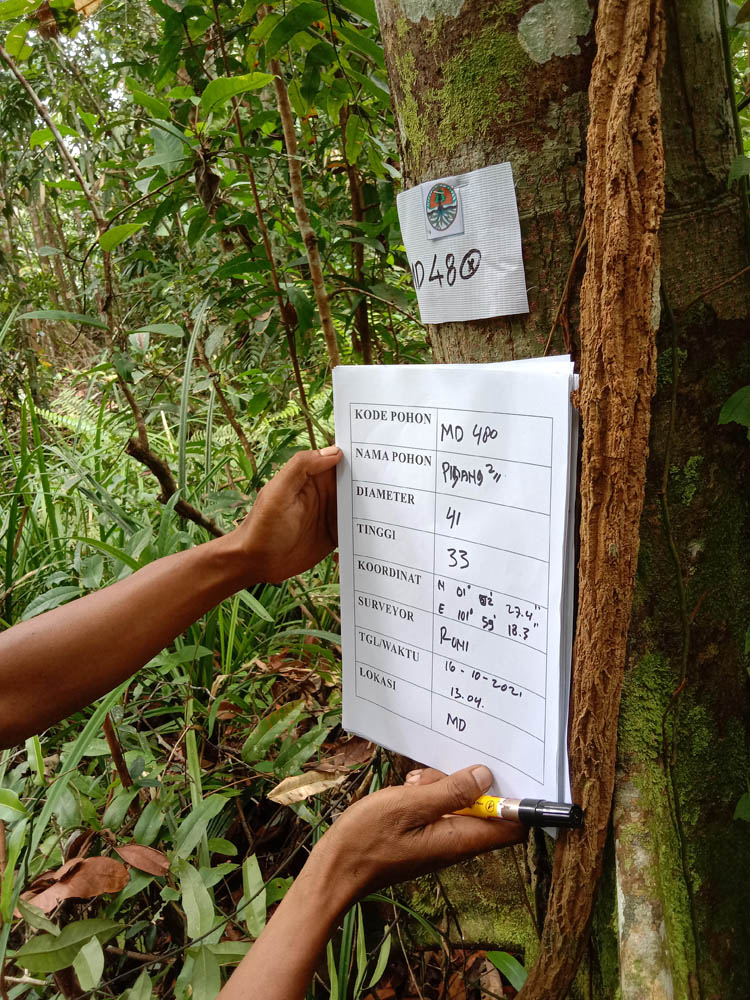 MD 480
KODE POHON MD 480
NAMA POHON PIDANG²"
DIAMETER 41
TINGGI 33
KOORDINAT N 01° 52' 27.4"
E 101° 59' 18.3"
SURVEYOR RONI
TGL/WAKTU 16-10-2021
13.04.
LOKASI MD